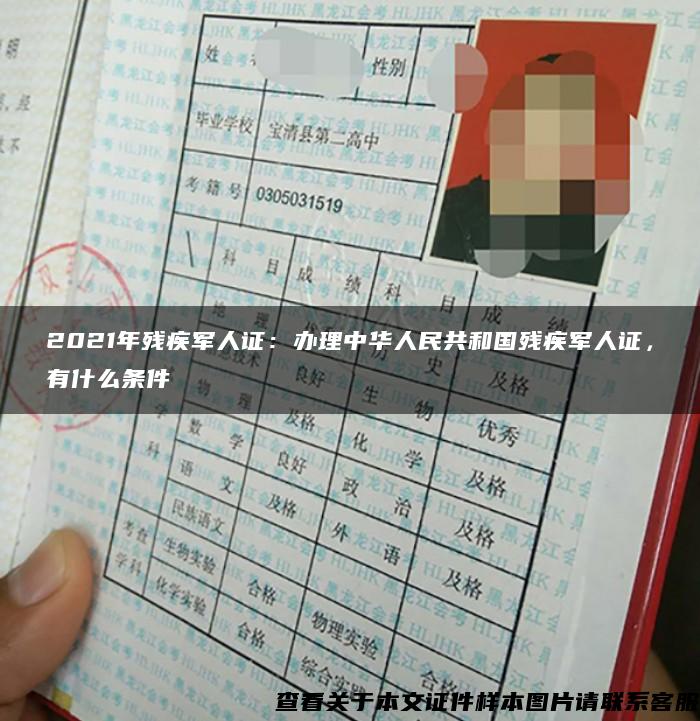 姓
性别
毕业学校
宝清县第二高中
考籍号
0305031519
科目
成绩
科目
成绩
地理
历史
及格
2021年残疾军人证：办理中华人民共和国残疾军人证，
有什么条件
技术
良好
生物
优秀
物理
及格
化学
及格
数学
良好
政治
及格
语文
及格
外语
及格
民族语文
考查
学科
生物实验
合格
物理实验
合格
化学实验
合格
综合实
查看关于本文证件样本图片请联系客服